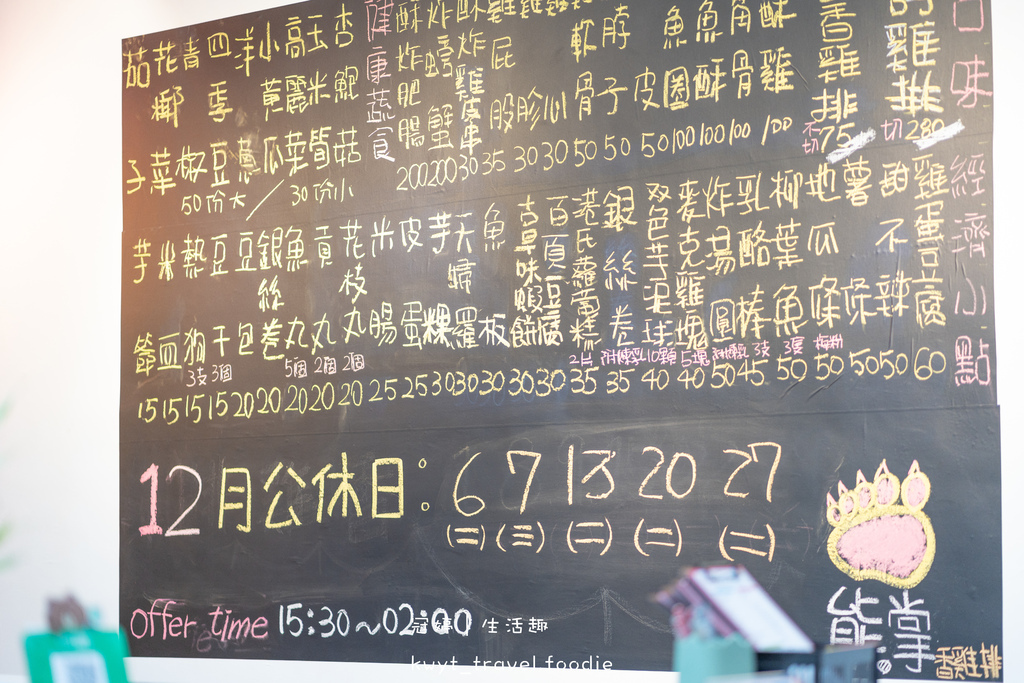 口味
雞排 切 280
香雞排 不切 75
酥雞 100
角骨 100
魚酥 100
魚圈 100
皮 50
脖子 50
軟骨 50
心 30
胗 30
屁股 35
酥炸雞皮串 30
炸螃蟹 200
酥炸肥腸 200
健康蔬食
杏鮑菇
玉米筍
高麗菜
小黃瓜
洋蔥
四季豆
青椒
花椰菜
茄子
50份大/30份小
經濟小點
雞蛋豆腐 60
甜不辣 50
薯條 50
地瓜條 梅粉 50
柳葉魚 3隻 50
乳酪棒 3支 45
炸湯圓 附煉乳 50
麥克雞塊 5塊 40
双色芋泥球 10顆 40
銀絲卷 附煉乳 35
港氏蘿蔔糕 2片 35
百頁豆腐 30
古早味蝦餅 30
魚板 30
天婦羅 30
芋粿 30
皮蛋 25
米腸 25
花枝丸 2個 20
貢丸 2個 20
魚丸 5個 20
銀絲卷 20
豆包 20
豆干 3個 15
熱狗 3支 15
米血 15
芋 15
12月公休日: 6 7 13 20 27
(二) (三) (二) (二) (二)
offer time 15:30~02:00
生活趣
kuyt_travel.foodie
熊掌
香雞排